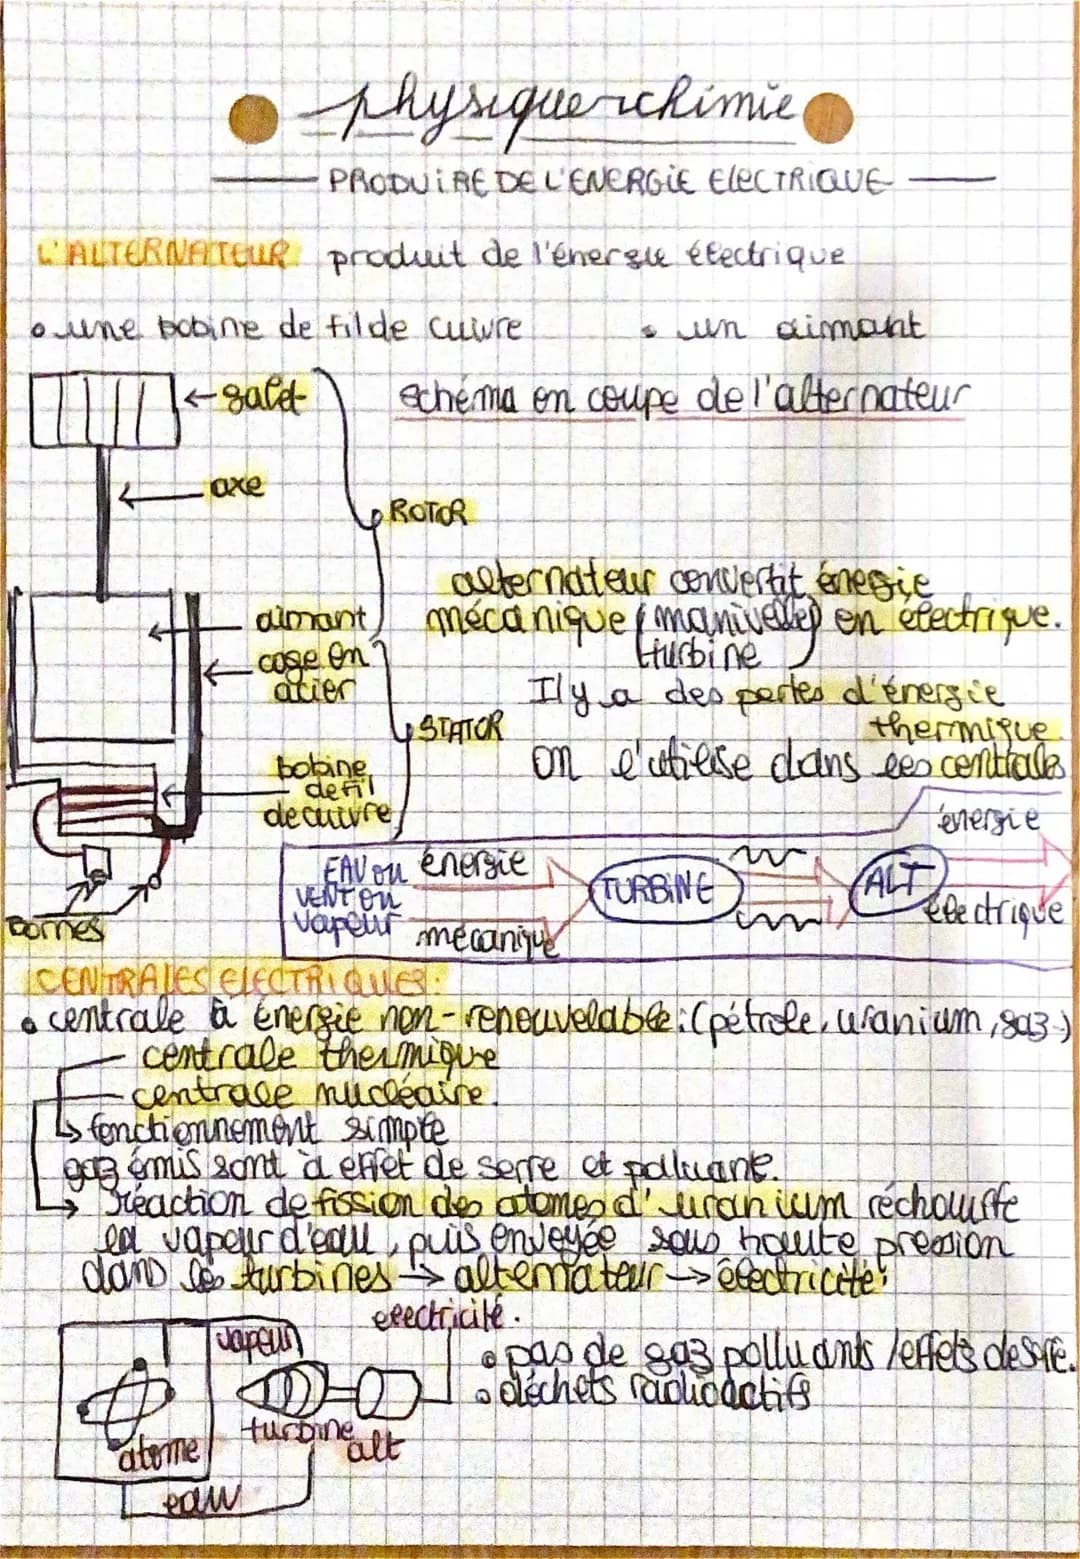 physique-chimie
PRODUIRE DE L'ENERGIE ElECTRIQUE
L'ALTERNATEUR produit de l'énergie électrique
• une bobine de fil de cuivre • un aimant
← galet schéma en coupe de l'alternateur
← axe
ROTOR
alternateur convertit énergie
aimant mécanique (manivelle) en électrique.
turbine
cage en
acier
Il y a des pertes d'énergie
STATOR thermique
bobine on l'utilise dans les centrales
de fil
de cuivre
énergie
EAU ou énergie
VENT ou TURBINE ALT
vapeur mécanique électrique
bornes
CENTRALES ELECTRIQUES:
• centrale à énergie non-renouvelable: (pétrole, uranium, gaz)
centrale thermique
centrale nucléaire.
↳ fonctionnement simple
gaz émis sont à effet de serre et polluant.
→ réaction de fission des atomes d'uranium réchauffe
la vapeur d'eau, puis envoyée sous haute pression
dans les turbines → alternateur → électricité.
électricité.
vapeur
• pas de gaz polluants / effets de serre.
• déchets radioactifs
turbine
atome alt
eau